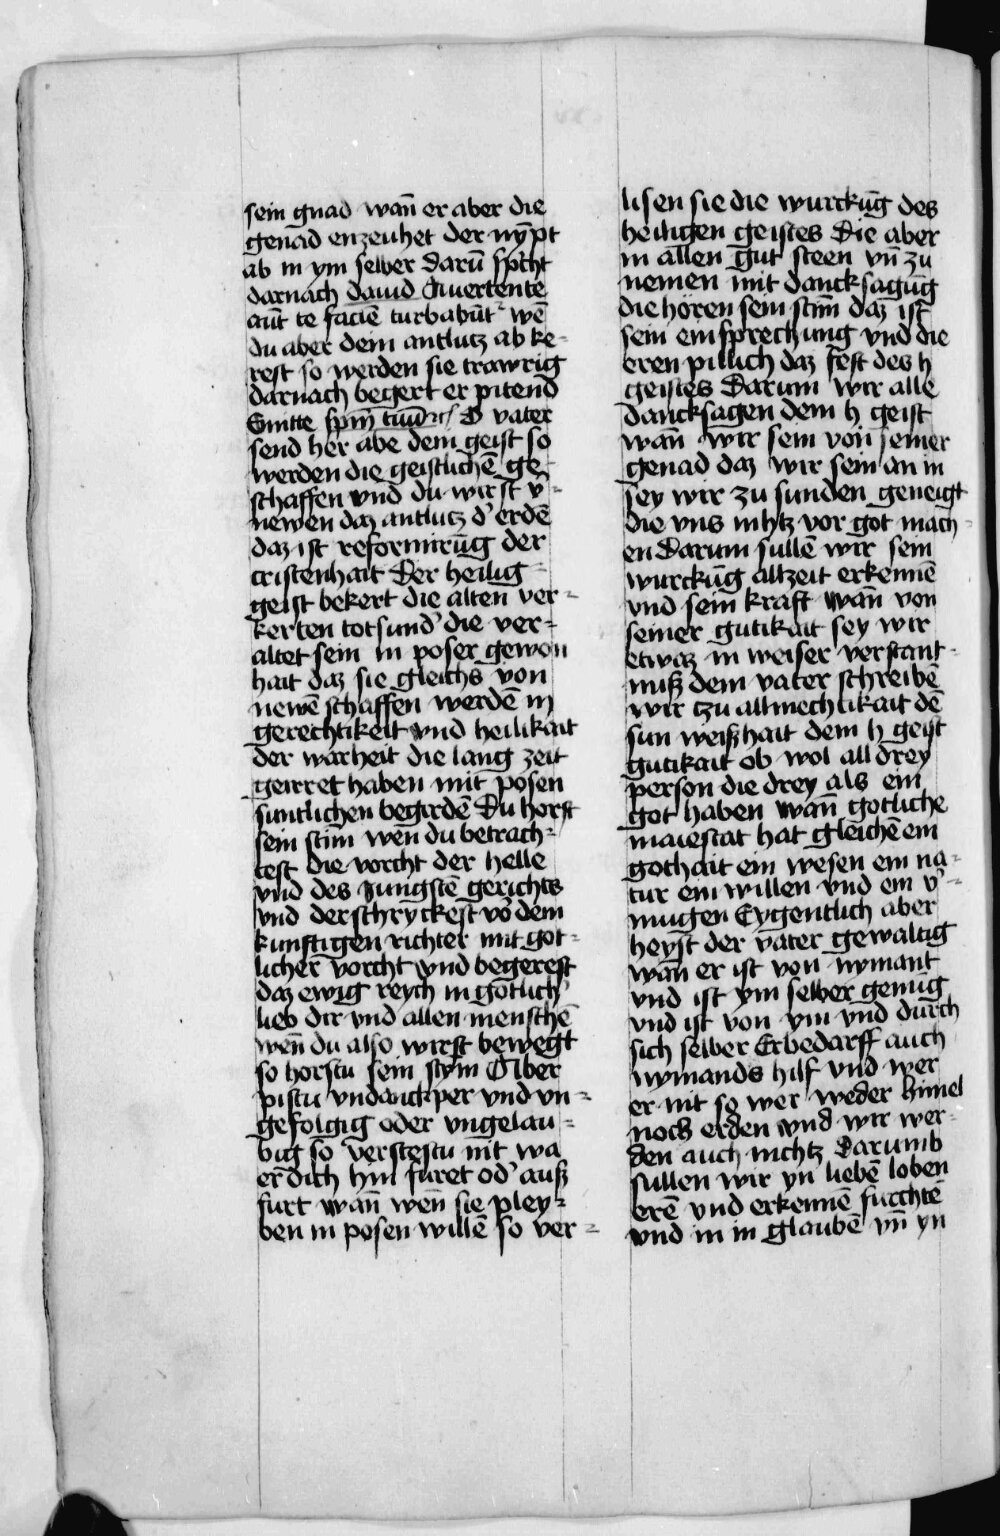 sein gnad wan̄ er aber die
genad enzeuhet der nȳpt
ab in ym selber darū sp̄cht
darnach dauid Auertente
aūt te faciē turbabūt² wē
du aber dein antlutz ab ke-
rest so werden sie trawrig
darnach begert er pitend
Emitte sp̄m tuū ⁊c̄ O vater
send her abe dein geist so
werden die geistlichē ge-
schaffen vnd du wirst v̓-
newen daz antlutz d̓ erdē
daz ist reformirūg der
cristenhait Der heilig
geist bekert die alten ver-
kerten totsund̓ die ver-
altet sein in poser gewon
hait daz sie gleichs von
newē schaffen werdē in
gerechtikeit vnd heilikait
der warheit die lang zeit
geirret haben mit posen
suntlichen begirdē Du horst
sein stim̄ wen̄ du betrach-
test die vorcht der helle
vnd des Jungstē gerichts
vnd derschryckest vō dem
kunftigen richter mit got-
licher vorcht vnd begerest
daz ewig reych in gotlich̓
lieb dir vnd allen menschē
wen̄ du also wirst bewegt
so horstu sein stym Aber
pistu vndanckper vnd vn-
gefolgig oder vngelau-
big so verstestu nit wa
er dich hin furet od̓ auß
furt wan̄ wen̄ sie pley-
ben in posen willē so ver-
lisen sie die wurckūg des
heiligen geistes Die aber
in allen gut steen vn̄ zu
nemen mit dancksagūg
die hören sein stim̄ daz ist
sein einsprechung vnd die
eren pillich daz fest des h
geistes Darum wir alle
dancksagen dem h geist
wan̄ wir sein von seiner
genad daz wir sein an in
sey wir zu sunden geneigt
die vns nihtz vor got mach-
en Darum sullē wir sein
wurckūg allzeit erkennē
vnd sein kraft wan̄ von
seiner gutikait sey wir
etwaz in weiser verstant-
nuß dem vater schreibē
wir tzu allmechtikait dē
sun weißhait dem h geist
gutikait ob wol all drey
person die drey als ein
got haben wan̄ gotliche
maiestat hat gleichē ein
gothait ein wesen ein na-
tur ein willen vnd ein v̓-
mugen Eygentlich aber
heyst der vater gewaltig
wan̄ er ist von nymant
vnd ist ym selber genug
vnd ist von ym vnd durch
sich selber Er bedarff auch
nymands hilf vnd wer
er nit so wer weder himel
noch erden vnd wir wer-
den auch nichtz Darumb
sullen wir yn liebē loben
erē vnd erkennē furchtē
vnd in in glaubē vn̄ yn